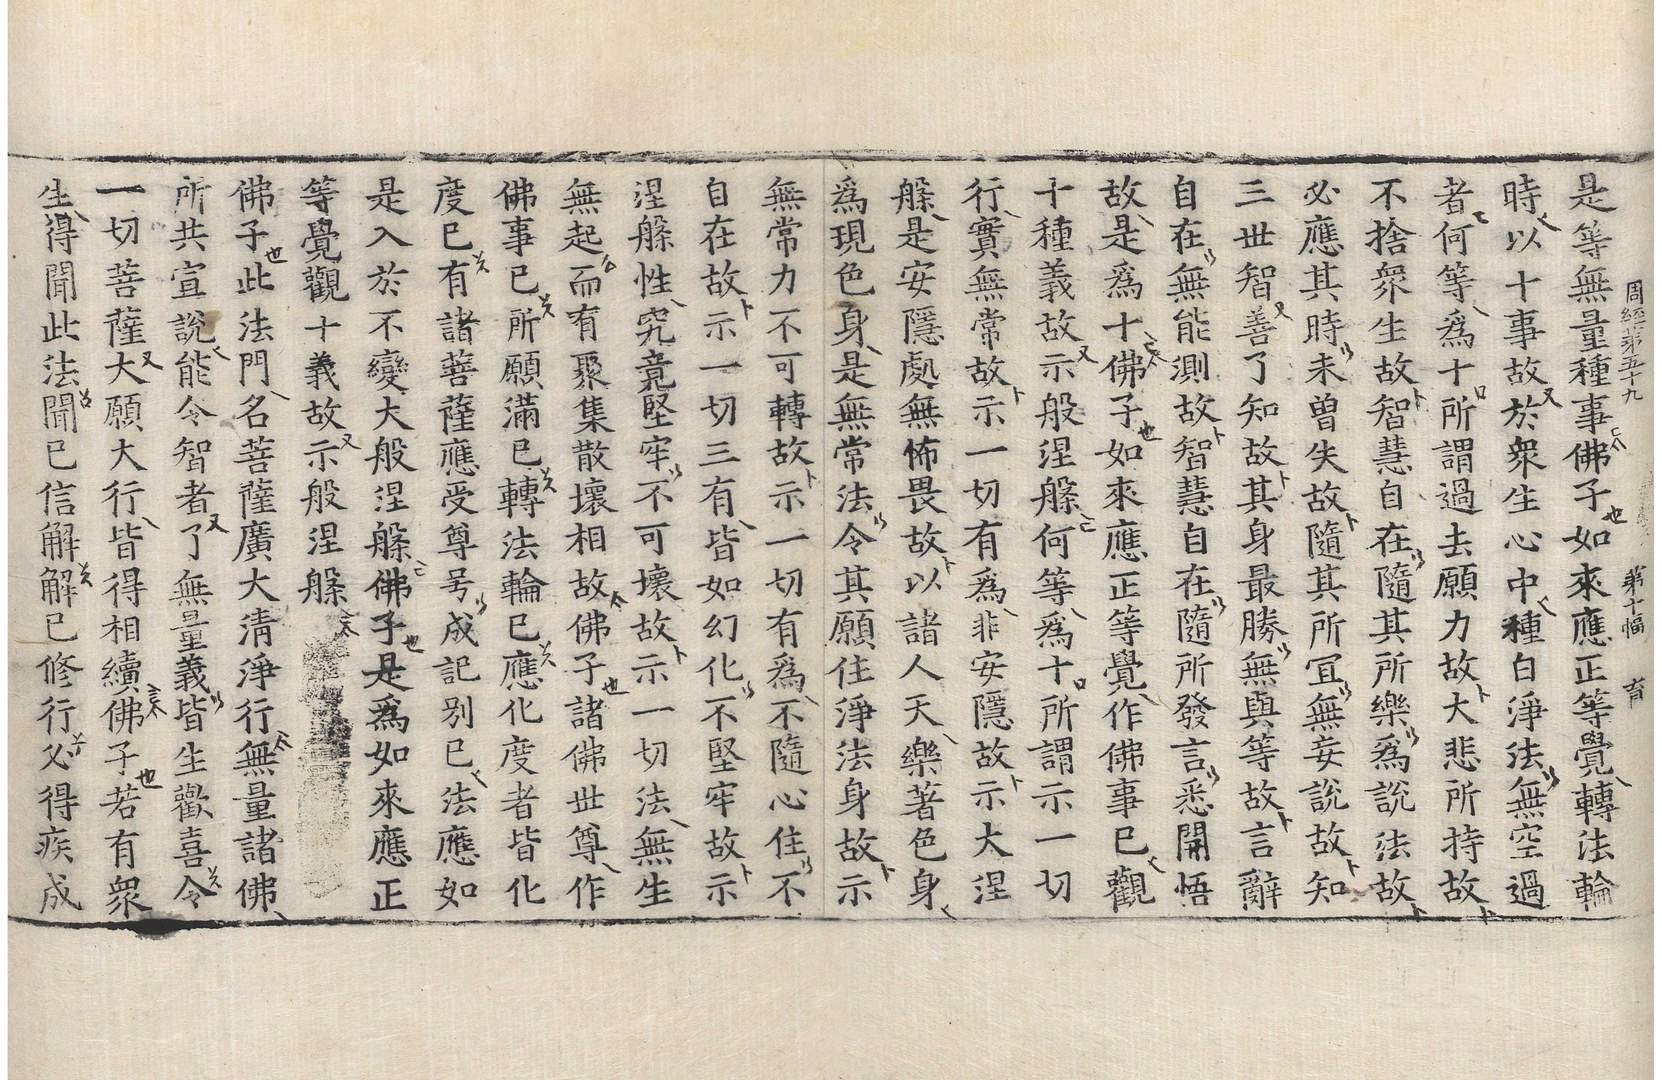 周經第五十九　第十幅　育
是等無量種事佛子如來應正等覺轉法輪
時以十事故於衆生心中種白淨法無空過
者何等爲十所謂過去願力故大悲所持故
不捨衆生故智慧自在隨其所樂爲說法故
必應其時未曾失故隨其所冝無妄說故知
三世智善了知故其身最勝無與等故言辭
自在無能測故智慧自在隨所發言悉開悟
故是爲十佛子如來應正等覺作佛事已觀
十種義故示般涅槃何等爲十所謂示一切
行實無常故示一切有爲非安隱故示大涅
槃是安隱處無怖畏故以諸人天樂著色身
爲現色身是無常法令其願住淨法身故示
無常力不可轉故示一切有爲不隨心住不
自在故示一切三有皆如幻化不堅牢故示
涅槃性究竟堅牢不可壞故示一切法無生
無起而有聚集散壞相故佛子諸佛世尊作
佛事已所願滿已轉法輪已應化度者皆化
度已有諸菩薩應受尊号成記別已法應如
是入於不變大般涅槃佛子是爲如來應正
等覺觀十義故示般涅槃
佛子此法門名菩薩廣大清淨行無量諸佛
所共宣說能令智者了無量義皆生歡喜令
一切菩薩大願大行皆得相續佛子若有衆
生得聞此法聞已信解解已修行必得疾成